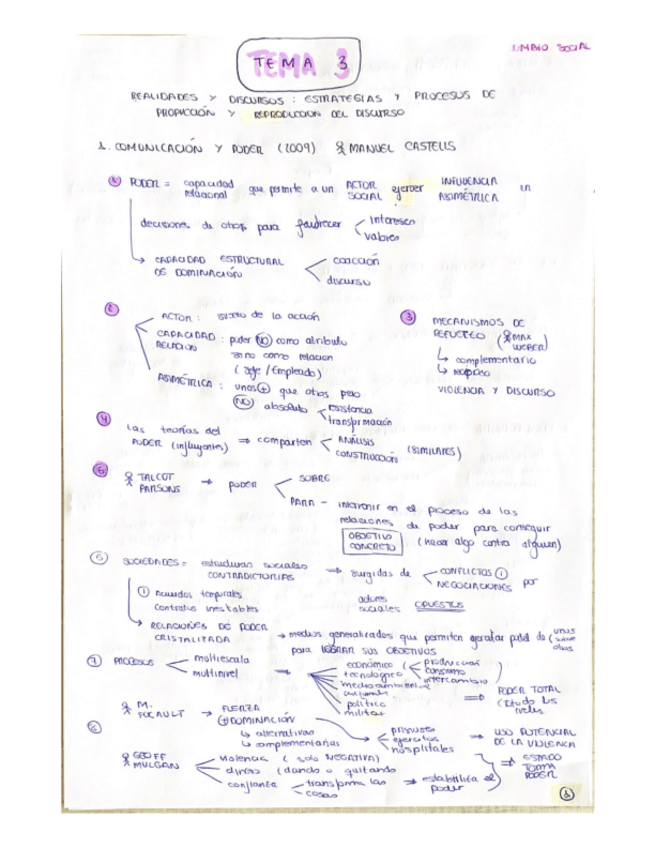 TEMA 3
REALIDADES Y DISCURSOS: ESTRATEGIAS Y PROCESOS DE
PRODUCCIÓN Y REPRODUCCIÓN DEL DISCURSO
1. COMUNICACIÓN Y PODER (2009) MANUEL CASTELLS
① PODER = capacidad relacional que permite a un ACTOR SOCIAL ejercer INFLUENCIA ASIMÉTRICA en
decisiones de otros para favorecer < intereses
valores
↳ CAPACIDAD ESTRUCTURAL
DE DOMINACIÓN < coacción
discurso
②
ACTOR: sujeto de la acción
CAPACIDAD RELACION: poder NO como atributo
sino como relacion
(Jefe/Empleado)
ASIMÉTRICA: unos ⊕ que otros, pero
NO absoluto < resistencia
transformación
③ MECANISMOS DE
REFUERZO (MAX
WEBER)
↳ complementario
↳ recíproco
VIOLENCIA Y DISCURSO
④ Las teorías del
PODER (influyentes) ⇒ comparten < ANÁLISIS
CONSTRUCCIÓN (SIMILARES)
⑤ TALCOT
PARSONS → PODER < SOBRE
PARA - intervenir en el proceso de las
relaciones de poder para conseguir
OBJETIVO
CONCRETO (hacer algo contra alguien)
⑥ SOCIEDADES = estructuras sociales
CONTRADICTORIAS → surgidas de < CONFLICTOS ①
NEGOCIACIONES por
① Acuerdos temporales
Contratos inestables
actores
sociales OPUESTOS
↳ RELACIONES DE PODER
CRISTALIZADA → medios generalizados que permiten ejercitar poder de (unos
sobre
otros
para LOGRAR SUS OBJETIVOS
⑦ PROCESOS < multiescala
multinivel →
económico (< produccion
consumo
intercambio)
tecnologico
medioambiental
cultural
político
militar
⇒ PODER TOTAL
(todo los
niveles
⑧
M.
FOCAULT → FUERZA
⊕ DOMINACIÓN
↳ alternativas
↳ complementarias
prisiones
ejercitos
hospitales
→ USO POTENCIAL
DE LA VIOLENCIA
GEOFF
MULGAN
violencia (solo NEGATIVA)
dinero (dando o quitando
confianza < transforma las
cosas
→ estabiliza el
poder
⇒ ESTADO
TOMA
PODER